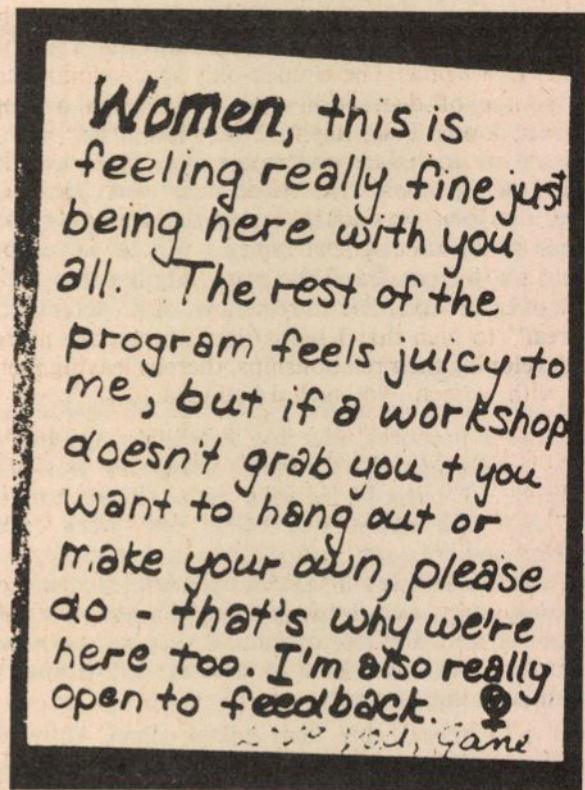 Women, this is
feeling really fine just
being here with you
all. The rest of the
program feels juicy to
me, but if a workshop
doesn't grab you + you
want to hang out or
make your own, please
do - that's why we're
here too. I'm also really
open to feedback.
you, Jane